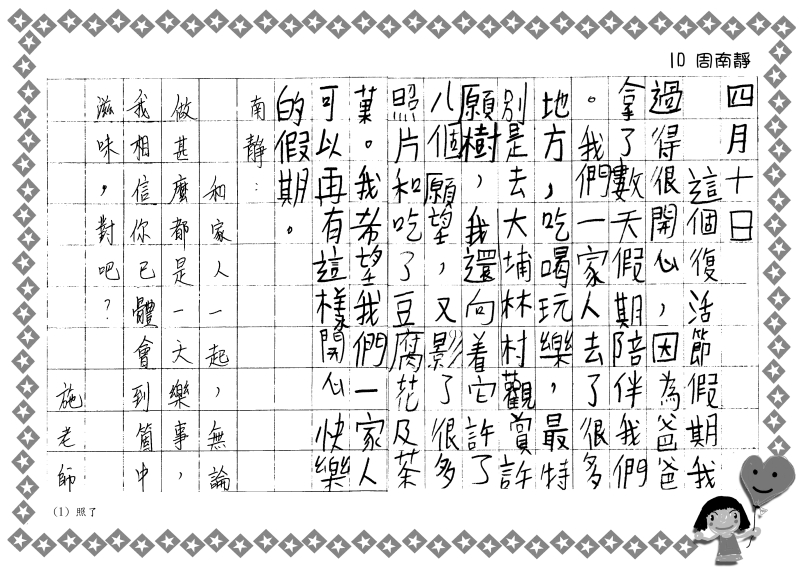 10 周南靜
四月十日
這個復活節假期我
過得很開心，因為爸爸
拿了數天假期陪伴我們
。我們一家人去了很多
地方，吃喝玩樂，最特
別是去大埔林村觀賞許
願樹，我還向着它許了
八個願望，又影⁽¹⁾了很多
照片和吃了豆腐花及茶
菓。我希望我們一家人
可以再有這樣開心快樂
的假期。
南靜：
和家人一起，無論
做甚麼都是一大樂事，
我相信你已體會到箇中
滋味，對吧？
施老師
(1) 照了